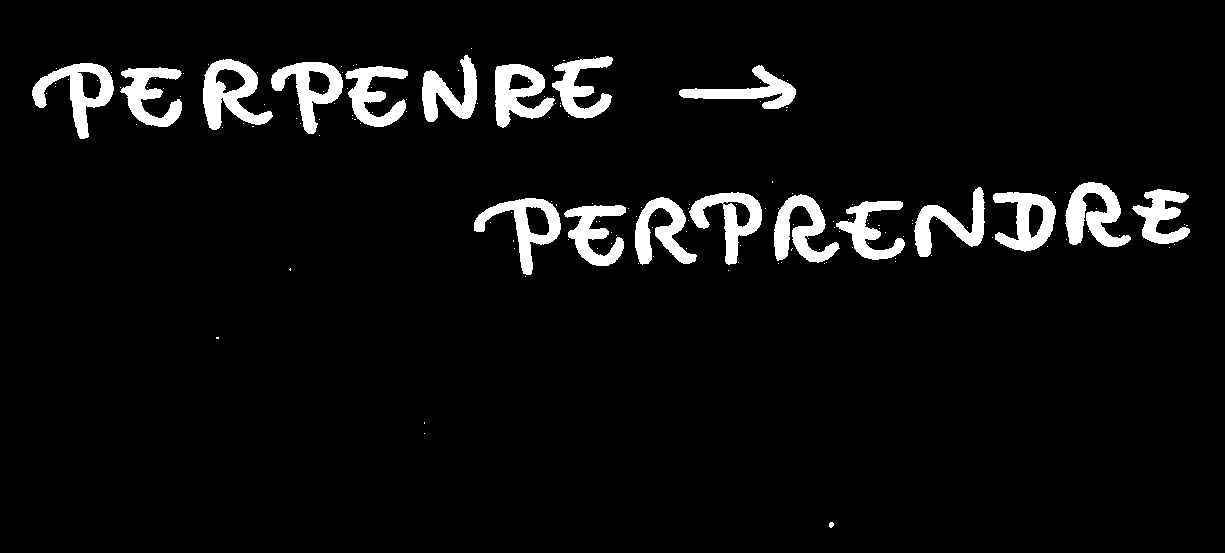 PERPENRE →
PERPRENDRE